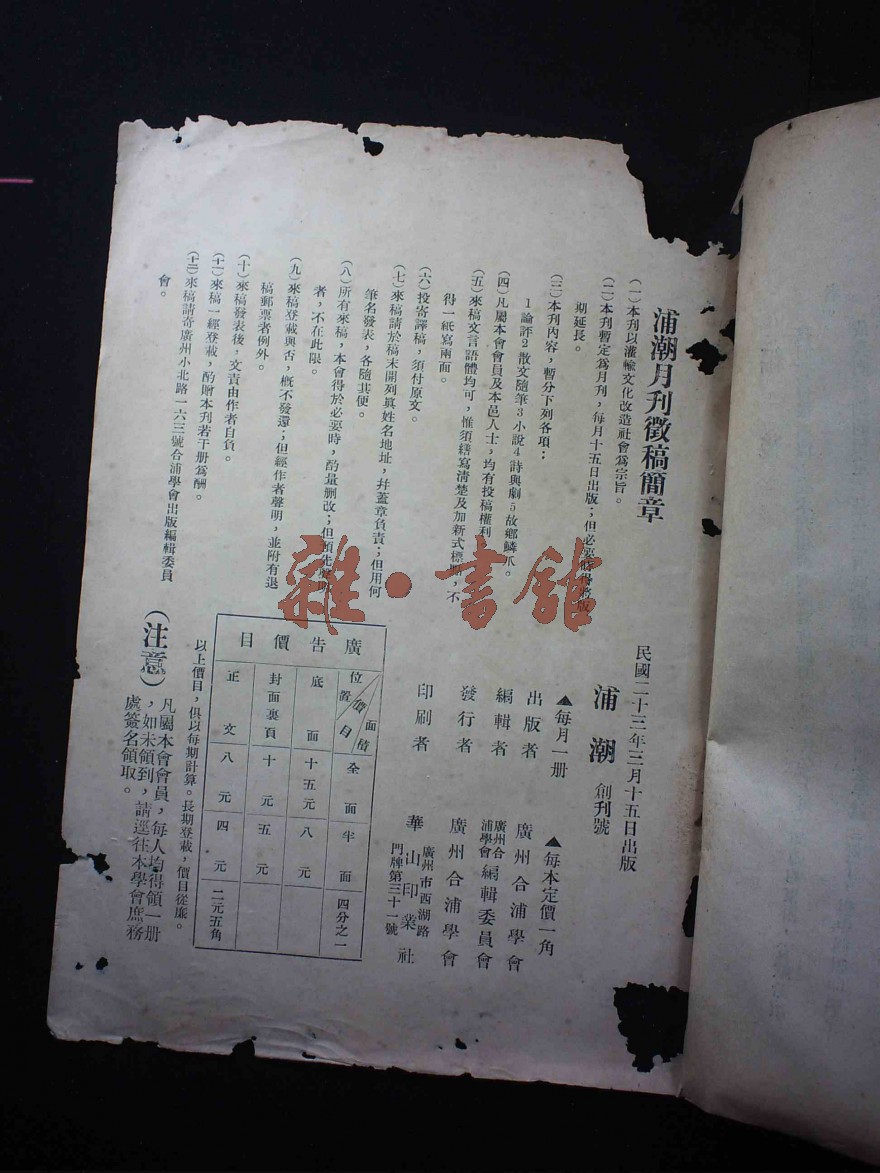 浦潮月刊徵稿簡章
(一)本刊以灌輸文化改造社會爲宗旨。
(二)本刊暫定爲月刊，每月十五日出版；但必要時得將版
期延長。
(三)本刊內容，暫分下列各項：
1論評2散文隨筆3小說4詩與劇5故鄉鱗爪。
(四)凡屬本會會員及本邑人士，均有投稿權利
(五)來稿文言語體均可，惟須繕寫清楚及加新式標點，不
得一紙寫兩面。
(六)投寄譯稿，須付原文。
(七)來稿請於稿末開列眞姓名地址，幷蓋章負責；但用何
筆名發表，各隨其便。
(八)所有來稿，本會得於必要時，酌量刪改；但預先聲明
者，不在此限。
(九)來稿登載與否，槪不發還；但經作者聲明，並附有退
稿郵票者例外。
(十)來稿發表後，文責由作者自負。
(十一)來稿一經登載，酌贈本刊若干册爲酬。
(十二)來稿請寄廣州小北路一六三號合浦學會出版編輯委員
會。
民國二十三年三月十五日出版
浦潮 創刊號
▲每月一册 ▲每本定價一角
出版者 廣州合浦學會
編輯者 廣州合浦學會編輯委員會
發行者 廣州合浦學會
印刷者 華山印業社
廣州市西湖路
門牌第三十一號
廣告價目
位置 價目 面積 全面 半面 四分之一
底面 十五元 八元
封面裏頁 十元 五元
正文 八元 四元 二元五角
以上價目，俱以每期計算。長期登載，價目從廉。
(注意)凡屬本會會員，每人均得領一册
，如未領到，請逕往本學會庶務
處簽名領取。
雜·書館